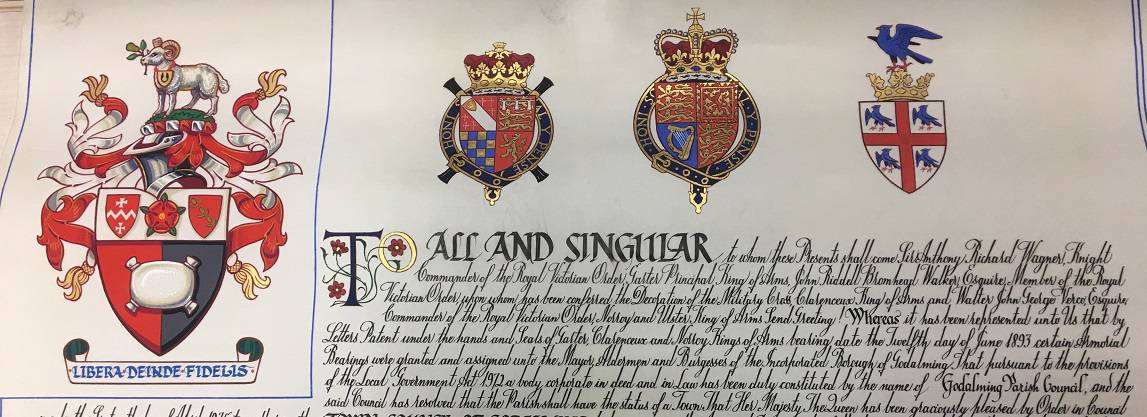 LIBERA DEINDE FIDELIS
HONI
Y PENSE
HONI
Y PENSE
TO ALL AND SINGULAR to whom these Presents shall come Sir Anthony Richard Wagner, Knight
Commander of the Royal Victorian Order, Garter Principal King of Arms, John Riddell Bromhead Walker, Esquire, Member of the Royal
Victorian Order, upon whom has been conferred the Decoration of the Military Cross, Clarenceux King of Arms and Walter John George Verco, Esquire,
Commander of the Royal Victorian Order, Norroy and Ulster King of Arms Send Greeting! Whereas it has been represented unto Us that by
Letters Patent under the hands and Seals of Garter Clarenceux and Norroy Kings of Arms bearing date the Twelfth day of June 1893 certain Armorial
Bearings were granted and assigned unto the Mayor, Aldermen and Burgesses of the Incorporated Borough of Godalming That pursuant to the provisions
of the Local Government Act 1972 a body corporate in deed and in Law has been duly constituted by the name of Godalming Parish Council, and the
said Council has resolved that the Parish shall have the status of a Town That Her Majesty The Queen has been graciously pleased by Order in Council